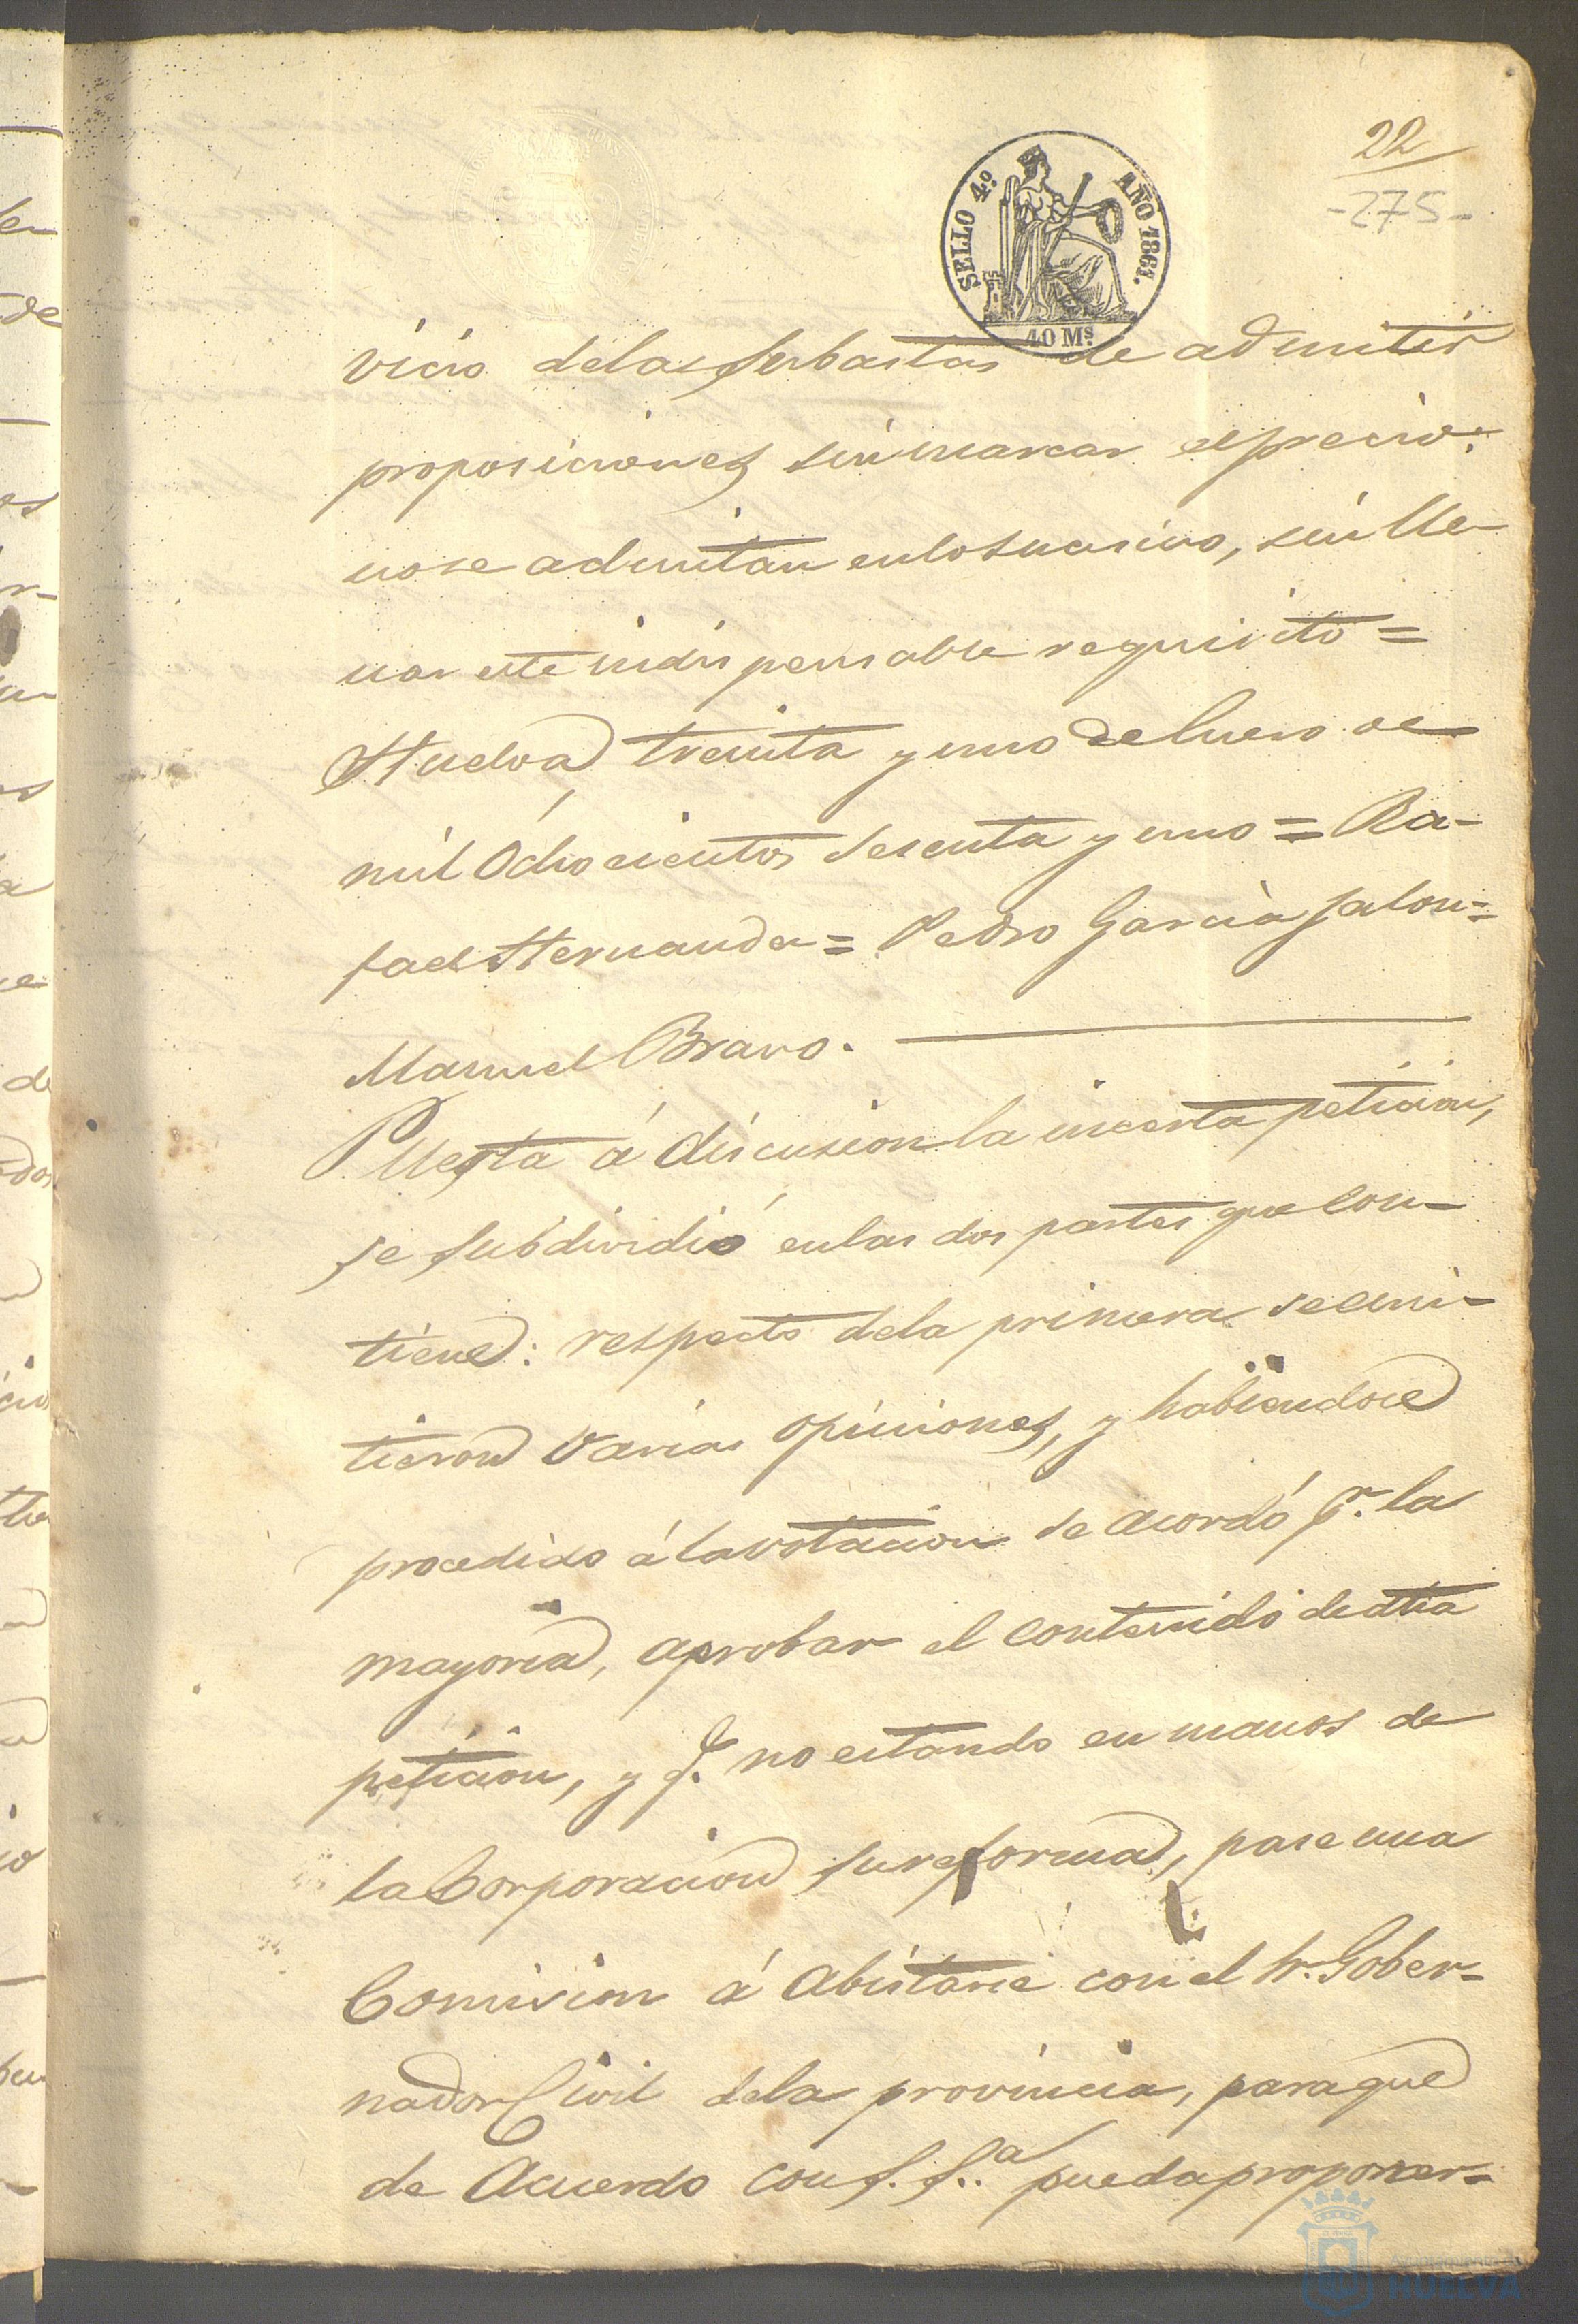 22
-275-
SELLO 4.º AÑO 1861.
40 Ms.
vicio delas Subastas de admitir
proposiciones sin marcar el precio:
no se admitan enlo sucsivo, sin lle-
nar este indispensable requisito =
Huelva treinta y uno de Enero de
mil Ochocientos sesenta y uno = Ra-
fael Hernandez = Pedro Garcia Jalon =
Manuel Bravo.
Puesta á discusion la incerta peticion,
se subdividió enlas dos partes que con-
tiene: respecto dela primera se emi-
tieron varias opiniones, y habiendoce
procedido á la votacion se acordó pr. la
mayoria, aprobar el contenido de dha
peticion, y q. no estando en manos de
la Corporacion su reforma, pase una
Comision á abistarce con el Sr. Gober-
nador Civil dela provincia, paraque
de Acuerdo con S. S.ª pueda proponer-
Ayuntamiento de
HUELVA